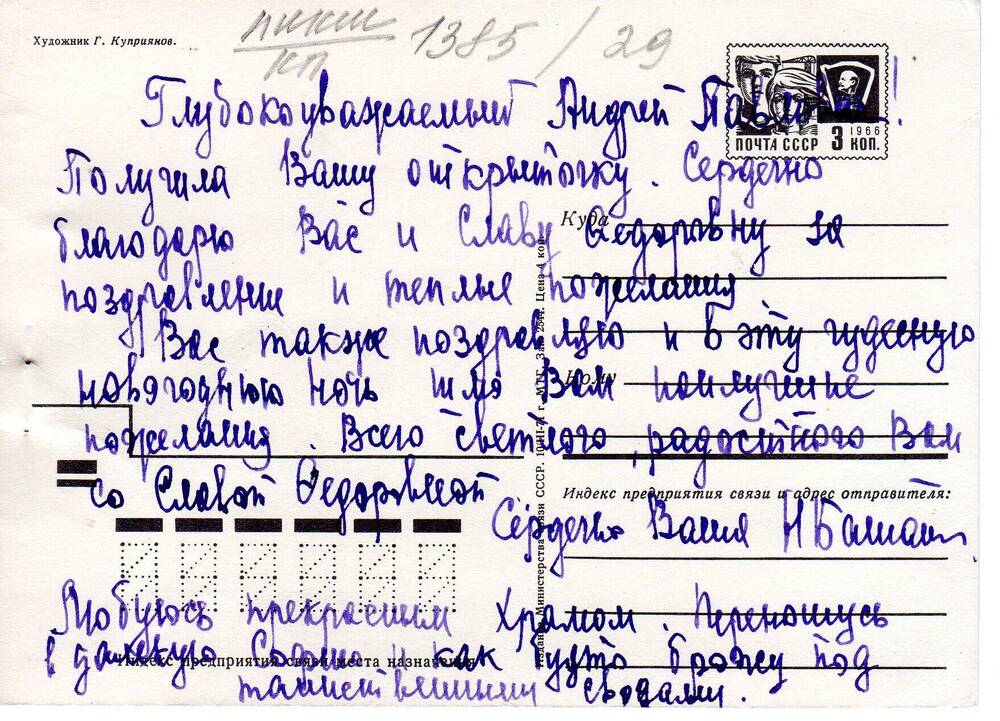 Художник Г. Куприянов.
КП 1385/29
ПОЧТА СССР 3 КОП. 1966
Глубокоуважаемый Андрей !
Получила Вашу открыточку. Сердечно
благодарю Вас и Славу Федоровну за
поздравление и теплые пожелания
Вас также поздравляю и в эту чудесную
новогоднюю ночь шлю Вам наилучшие
пожелания. Всего светлого, радостного Вам
со Славой Федоровной
Сердечно Ваша Н
Любуюсь прекрасным храмом. Переношусь
в далекую и как будто брожу под
таинственными сводами.
Куда
Кому
Индекс предприятия связи и адрес отправителя:
Индекс предприятия связи места назначения
Издание Министерства связи СССР. Цена 4 коп.